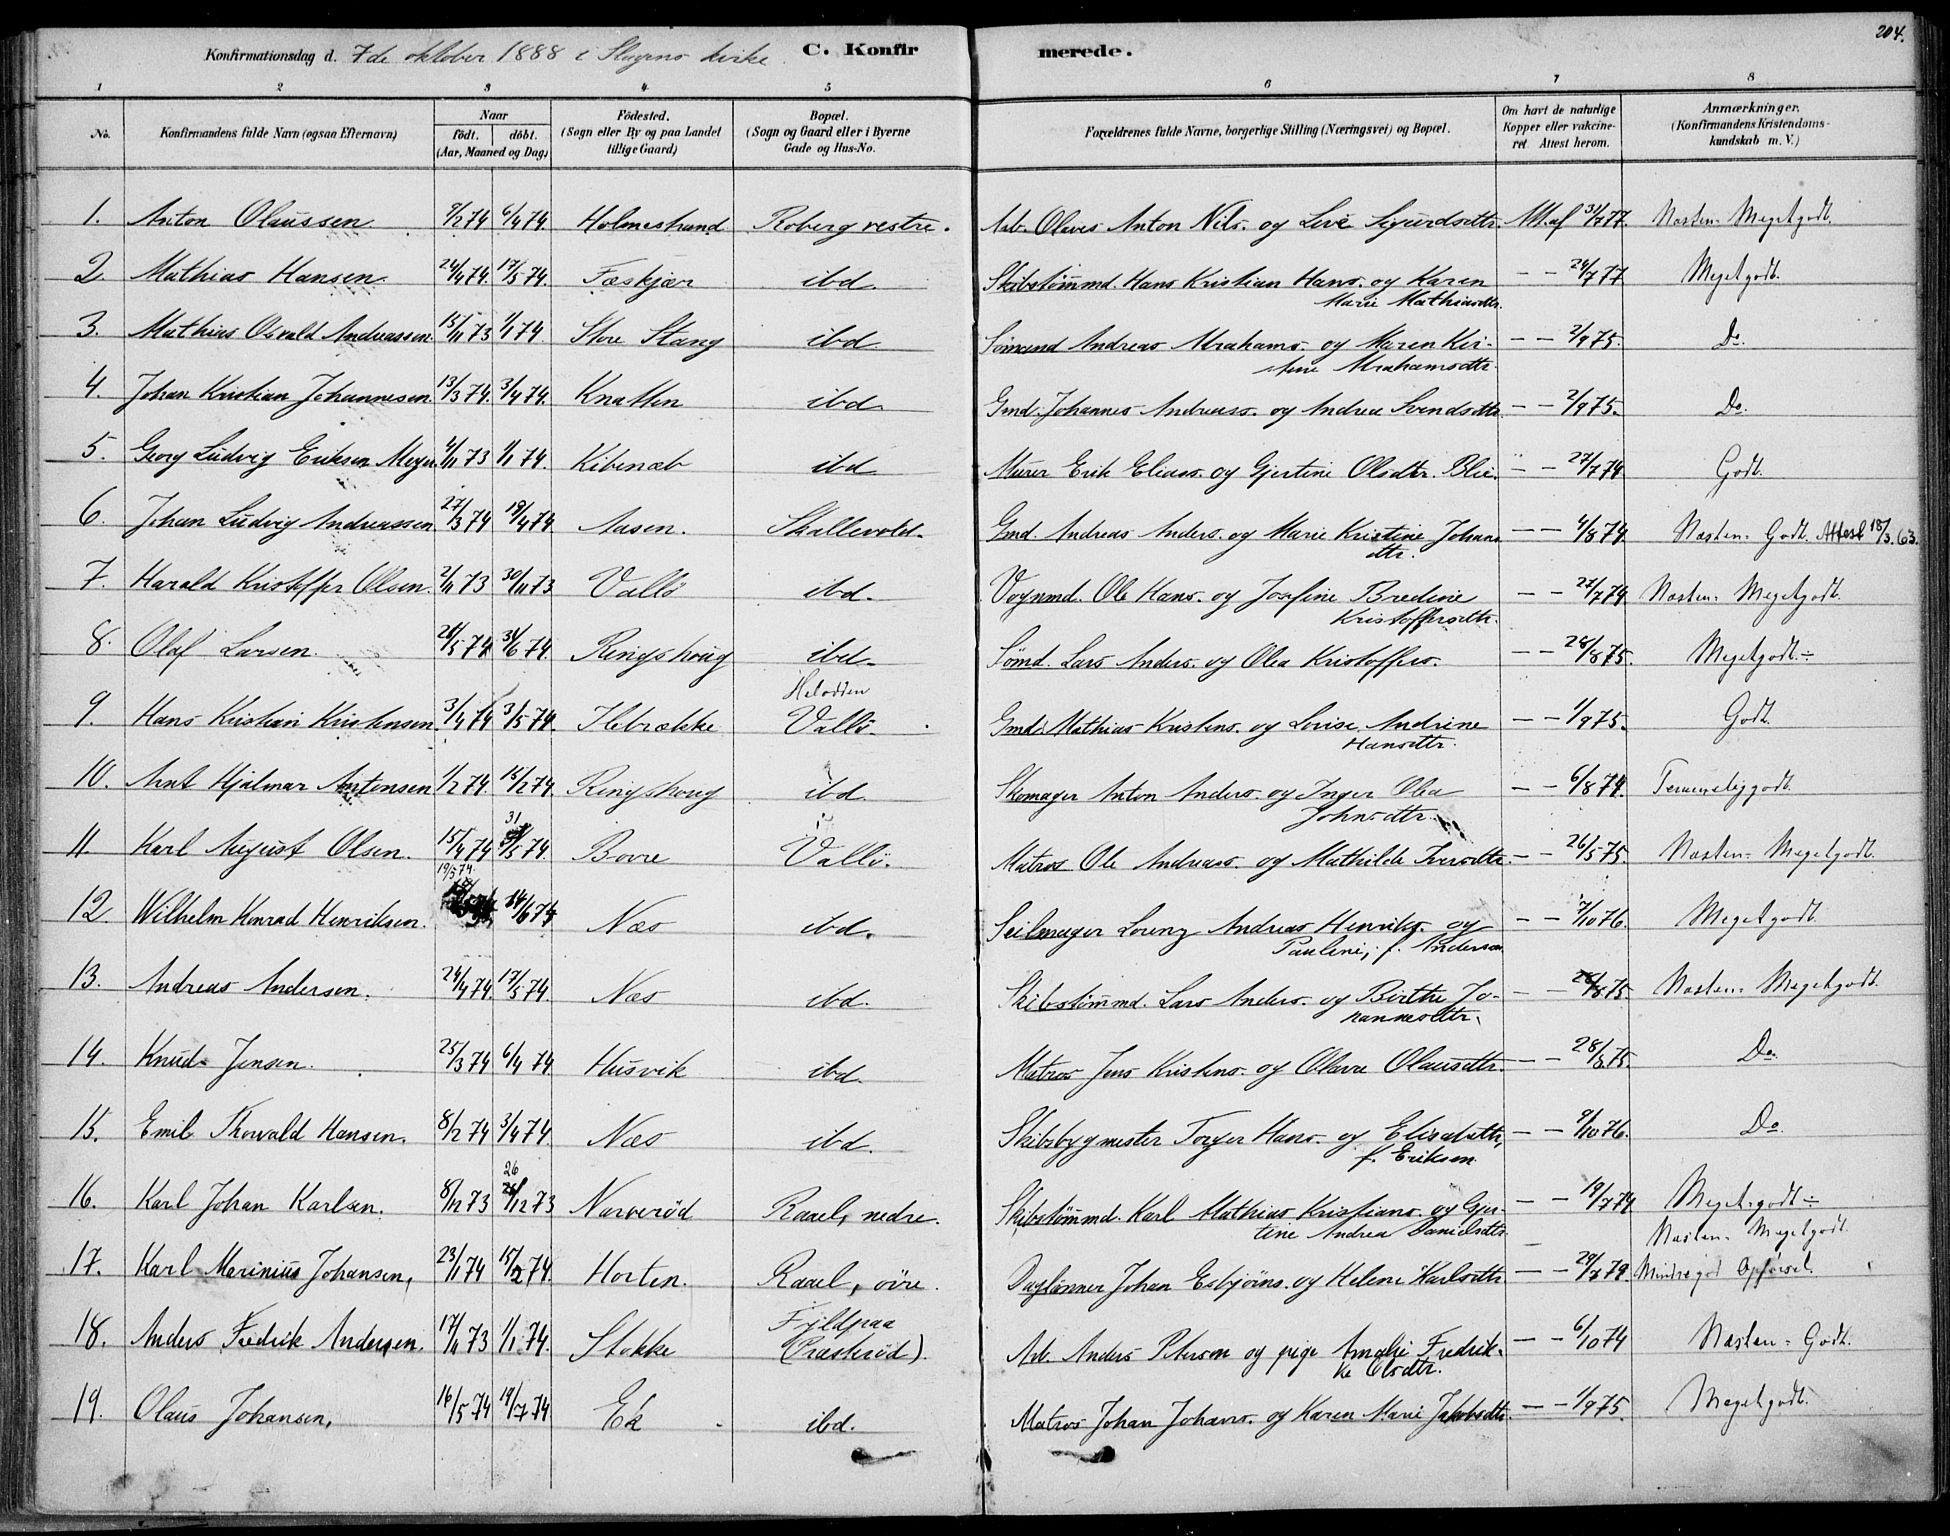 204.
Konfirmationsdag d. 7de oktober 1888 i Slagens kirke C. Konfirmerede.
1 2 3 4 5 6 7 8
No. Konfirmandens fulde Navn (ogsaa Efternavn) Naar født. døbt. (Aar, Maaned og Dag) Fødested. (Sogn eller By og paa Landet tillige Gaard) Bopæl. (Sogn og Gaard eller i Byerne Gade og Hus-No. Forældrenes fulde Navne, borgerlige Stilling (Næringsvei) og Bopæl. Om havt de naturlige Kopper eller vakcineret Attest herom. Anmærkninger. (Konfirmandens Kristendomskundskab m. V.)
1. Anton Olaussen 9/2 74 6/4 74. Holmestrand Roberg vestre. Arb. Olaves Anton Nils. og Live Sigurdsdttr. Att. af 31/7 77. Næsten = Megetgodt.
2. Mathias Hansen 24/4 74. 17/5 74. Fæskjær ibd. Skibstømmd. Hans Kristian Hans. og Karen Marie Mathiasdtr. — — 24/7 77 Megetgodt.
3. Mathias Osvald Andreassen. 15/11 73 1/1 74. Store Stang ibd. Sømand Andreas Abrahams. og Maren Kirstine Abrahamsdtr. — — 2/9 75. Do.
4. Johan Kristian Johannesen. 13/3 74. 3/4 74. Knatten ibd. Gmd. Johannes Andreass. og Andrea Svendsdttr. — — 2/9 75. Do.
5. Georg Ludvig Eriksen Meyer. 4/11 73 1/1 74. Kibenæb ibd Murer Erik Eliass. og Gjertine Olsdtr. — — 27/7 74 Godt.
6. Johan Ludvig Andreassen 27/3 74 19/4 74. Aasen. Skallevold. Gmd. Andreas Anders. og Marie Kristine Johansdtr. — — 4/8 74. Næsten = Godt. Attest 18/3. 63.
7. Harald Kristoffer Olsen. 2/11 73 30/11 73 Vallø ibd. Vognmd. Ole Hans. og Josefine Bredine Kristoffersdtr. — — 27/7 74 Næsten = Megetgodt.
8. Olaf Larsen. 28/5 74 31/6 74. Ringshoug ibd. Sømd. Lars Anders. og Olea Kristoffers. — — 28/8 75. Megetgodt ÷
9. Hans Kristian Kristensen. 3/4 74 3/5 74. Ilebrække Helodden Vallø. Gmd. Mathias Kristens. og Lovise Andrine Hansdtr. — — 1/9 75. Godt.
10. Arnt Hjalmar Antonsen 1/2 74 15/2 74. Ringshoug ibd. Skomager Anton Anders. og Inger Olea Johnsdtr. — — 6/8 74. Temmeliggodt.
11. Karl August Olsen. 15/4 74 31/5 74. Bovre Vallø. Matros Ole Andreass. og Mathilde Iversdtr. — — 26/5 75. Næsten = Megetgodt.
12. Wilhelm Konrad Henriksen. 19/5 74. 14/6 74 Næs ibd. Seilmager Lorenz Andreas Henriks. og Pauline, f. Anderson — — 7/10 76. Megetgodt.
13. Andreas Andersen. 24/4 74. 17/5 74. Næs ibd. Skibstømmd. Lars Anders. og Birthe Johannesdtr. — — 28/8 75. Næsten = Megetgodt.
14. Knud Jensen. 25/3 74 6/4 74. Husvik ibd. Matros Jens Kristens. og Olava Olausdtr. — — 28/8 75. Do.
15. Emil Thorvald Hansen. 8/2 74 3/4 74. Næs ibd. Skibsbygmester Torger Hans. og Elisabeth, f. Eriksen — — 9/10 76. Do.
16. Karl Johan Karlsen. 8/12 73 26/12 73 Narverød Raael, nedre. Skibstømmd. Karl Mathias Kristians. og Gjertine Andrea Danielsdtr. — — 19/7 74 Megetgodt ÷
17. Karl Marinius Johansen, 23/1 74 15/2 74. Horten. Raael, øvre. Dagløner Johan Esbjøns. og Helene Karlsdtr. — — 29/7 79 Næsten = Megetgodt. Mindregod Opførsel.
18. Anders Fredrik Andersen. 17/11 73 1/1 74. Stokke Fyldpaa (Præsterød). Arb. Anders Peterson og pige Amalie Fredrikke Olsdtr. — — 6/10 74 Næsten = Godt.
19. Olaus Johansen, 16/5 74 19/7 74 Ek ibd. Matros Johan Johans. og Karen Marie Jakobsdtr. — — 1/9 75. Megetgodt.